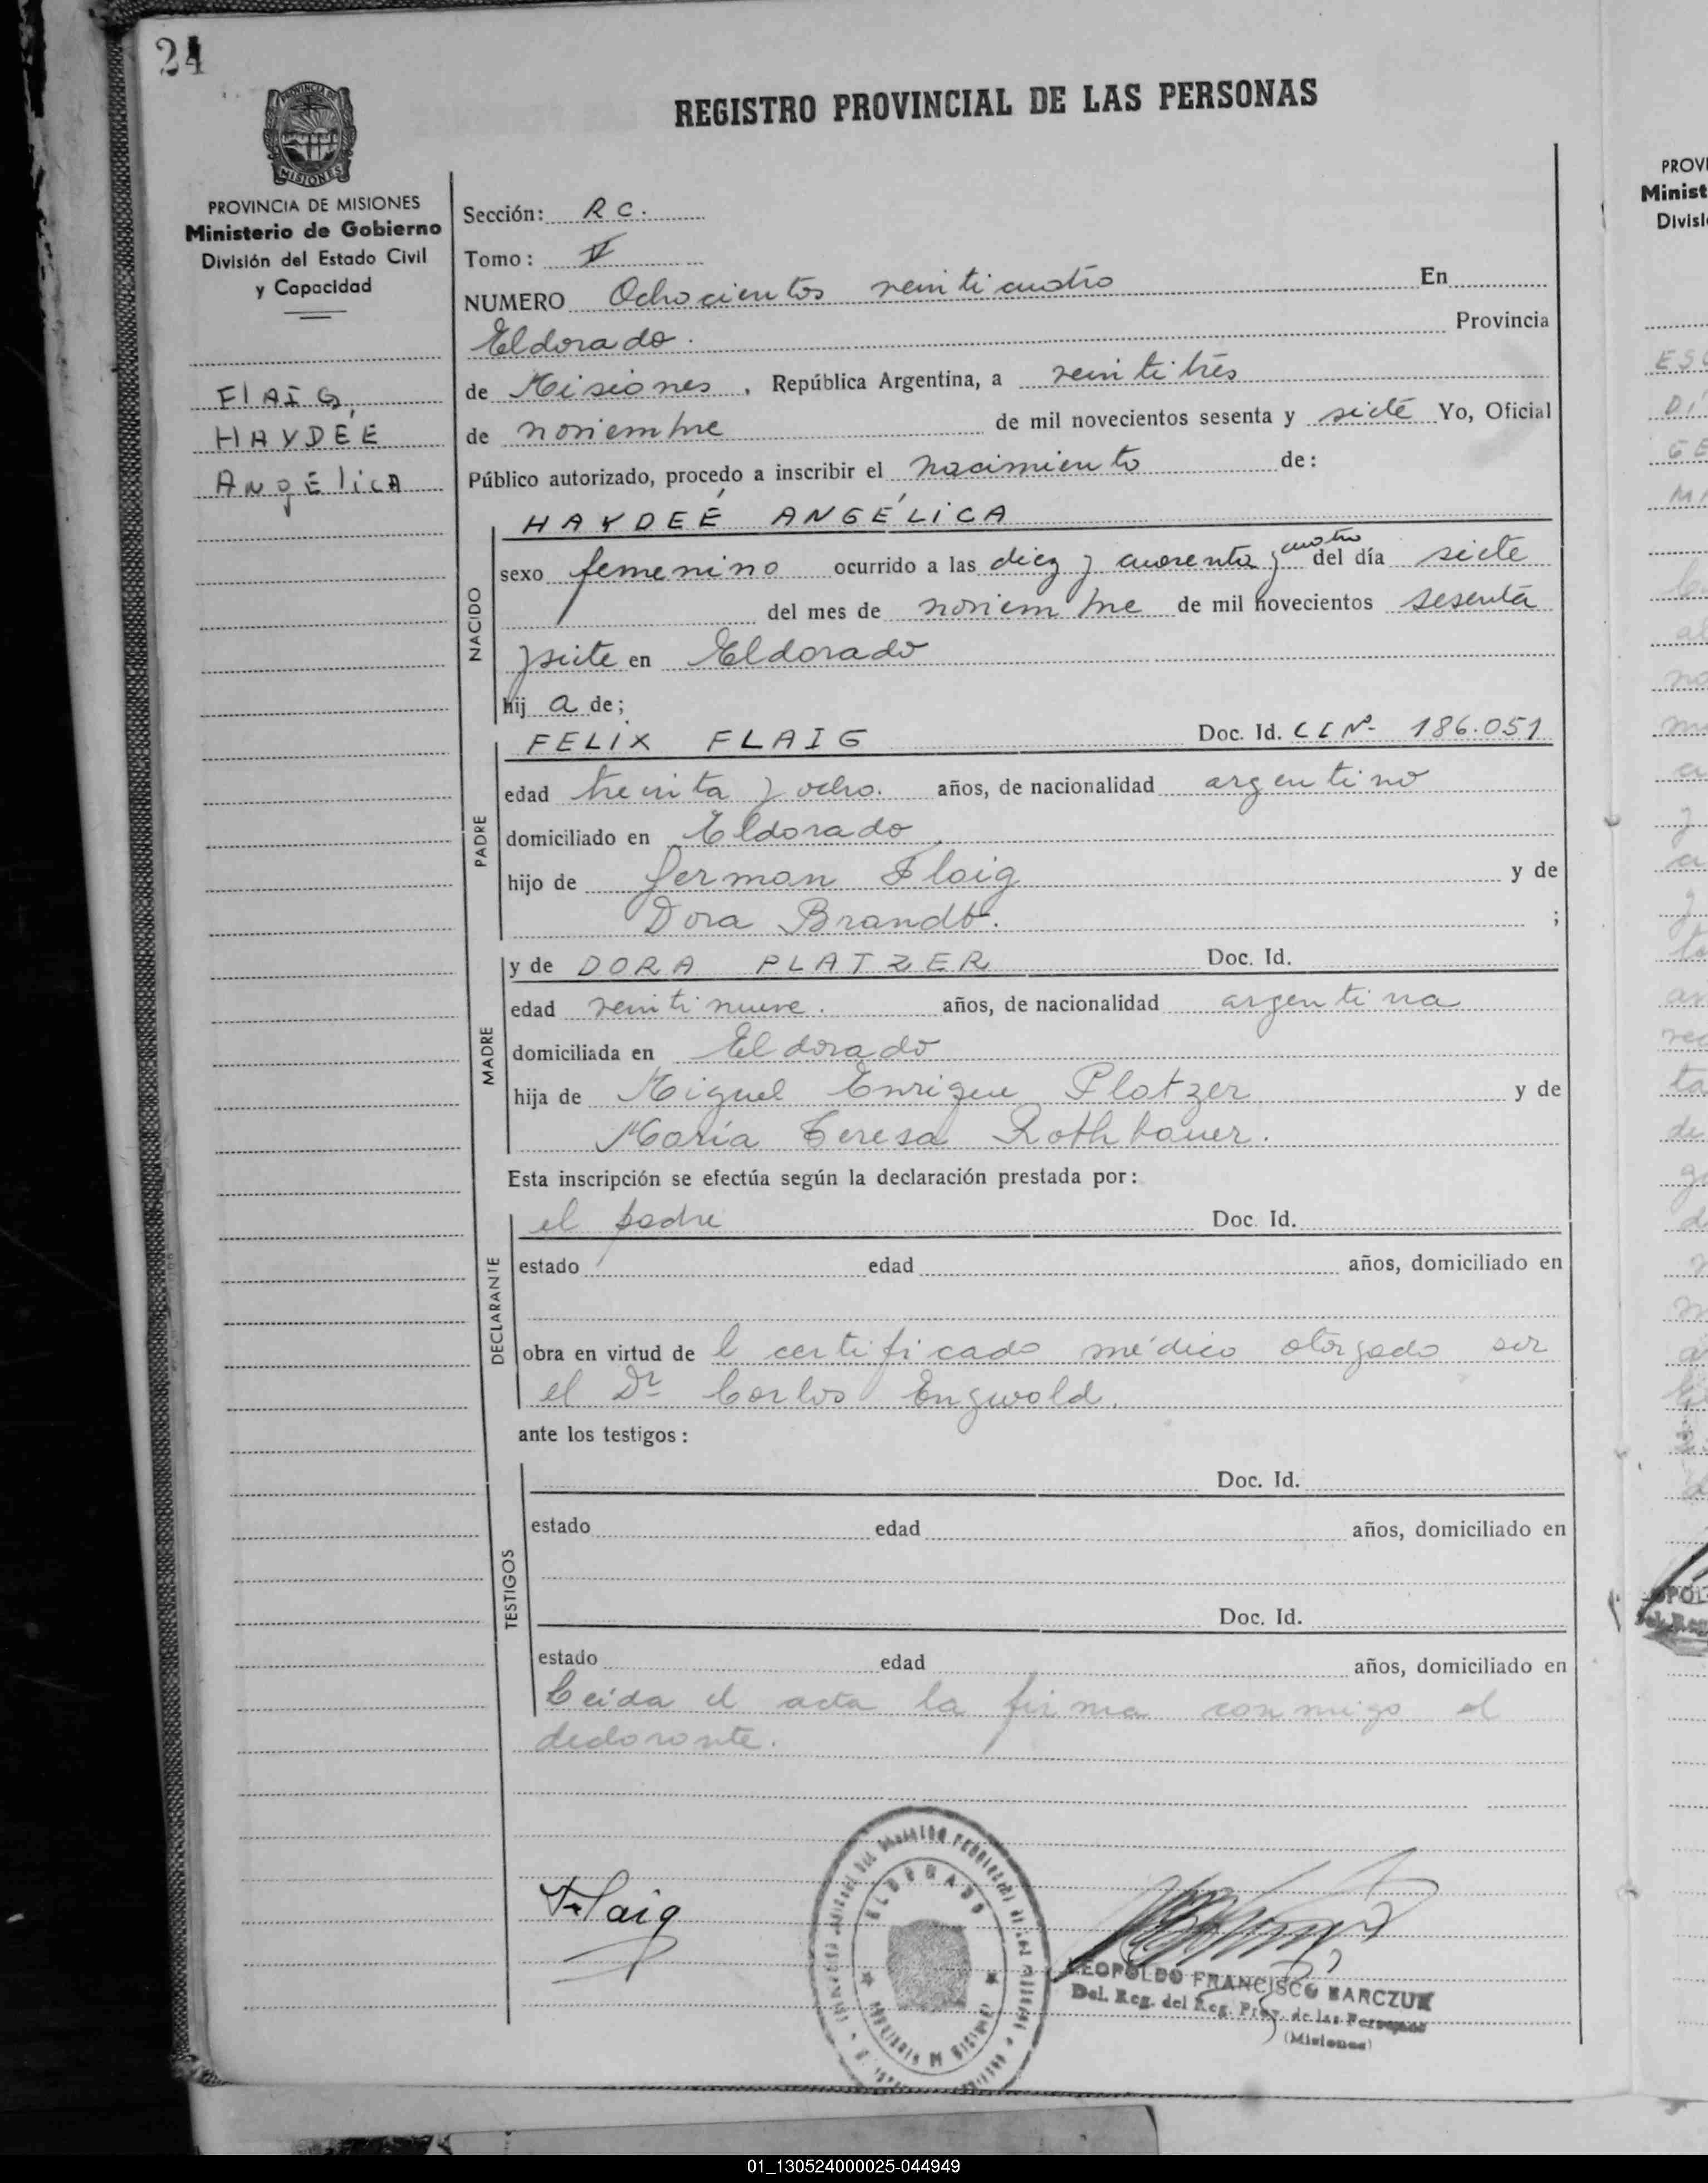 24
REGISTRO PROVINCIAL DE LAS PERSONAS
PROVINCIA DE MISIONES
Ministerio de Gobierno
División del Estado Civil
y Capacidad
FlAIG,
HAYDÉE
ANgÉlicA
Sección: R C.
Tomo: V
NUMERO Ochocientos veinticuatro En
Eldorado. Provincia
de Misiones, República Argentina, a veintitrés
de noviembre de mil novecientos sesenta y siete Yo, Oficial
Público autorizado, procedo a inscribir el nacimiento de:
NACIDO
HAYDEÉ ANGÉLICA
sexo femenino ocurrido a las diez y cuarenta y cuatro del día siete
del mes de noviembre de mil novecientos sesenta
y siete en Eldorado
hij a de;
PADRE
FELIX FLAIG Doc. Id. C I Nº 186.051
edad treinta y ocho. años, de nacionalidad argentino
domiciliado en Eldorado
hijo de German Flaig y de
Dora Brandt. ;
MADRE
y de DORA PLATZER Doc. Id.
edad veintinueve. años, de nacionalidad argentina
domiciliada en Eldorado
hija de Miguel Enrique Platzer y de
María Teresa Rothbauer.
Esta inscripción se efectúa según la declaración prestada por:
DECLARANTE
el padre Doc. Id.
estado edad años, domiciliado en
obra en virtud de l certificado médico otorgado por
el Dr Carlos Engwald.
ante los testigos:
TESTIGOS
Doc. Id.
estado edad años, domiciliado en
Doc. Id.
estado edad años, domiciliado en
Leida el acta la firma conmigo el
declarante.
Flaig
ELDORADO
LEOPOLDO FRANCISCO BARCZUK
Del. Reg. del Reg. Prov. de las Personas
(Misiones)
PROVI
Minist
Divisi
01_130524000025-044949